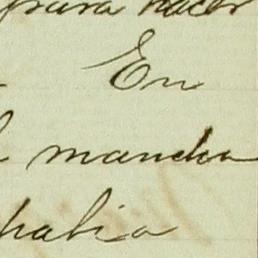 para hacer
En
mancha
habia